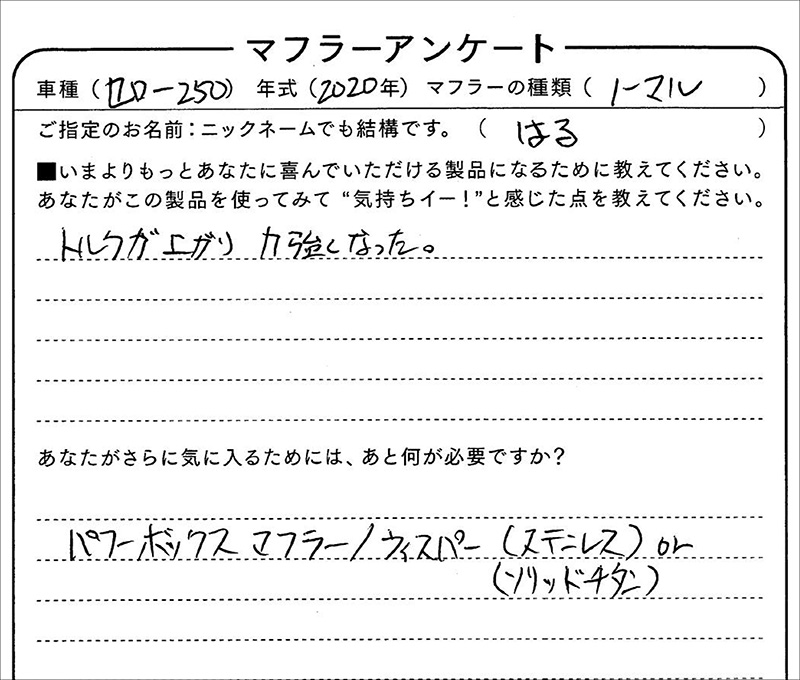 マフラーアンケート
車種（セロー250）年式（2020年）マフラーの種類（ノーマル）
ご指定のお名前：ニックネームでも結構です。（はる）
■いまよりもっとあなたに喜んでいただける製品になるために教えてください。
あなたがこの製品を使ってみて“気持ちイー！”と感じた点を教えてください。
トルクが上がり 力強くなった。
あなたがさらに気に入るためには、あと何が必要ですか？
パワーボックス マフラー/ウィスパー（ステンレス）or
（ソリッドチタン）